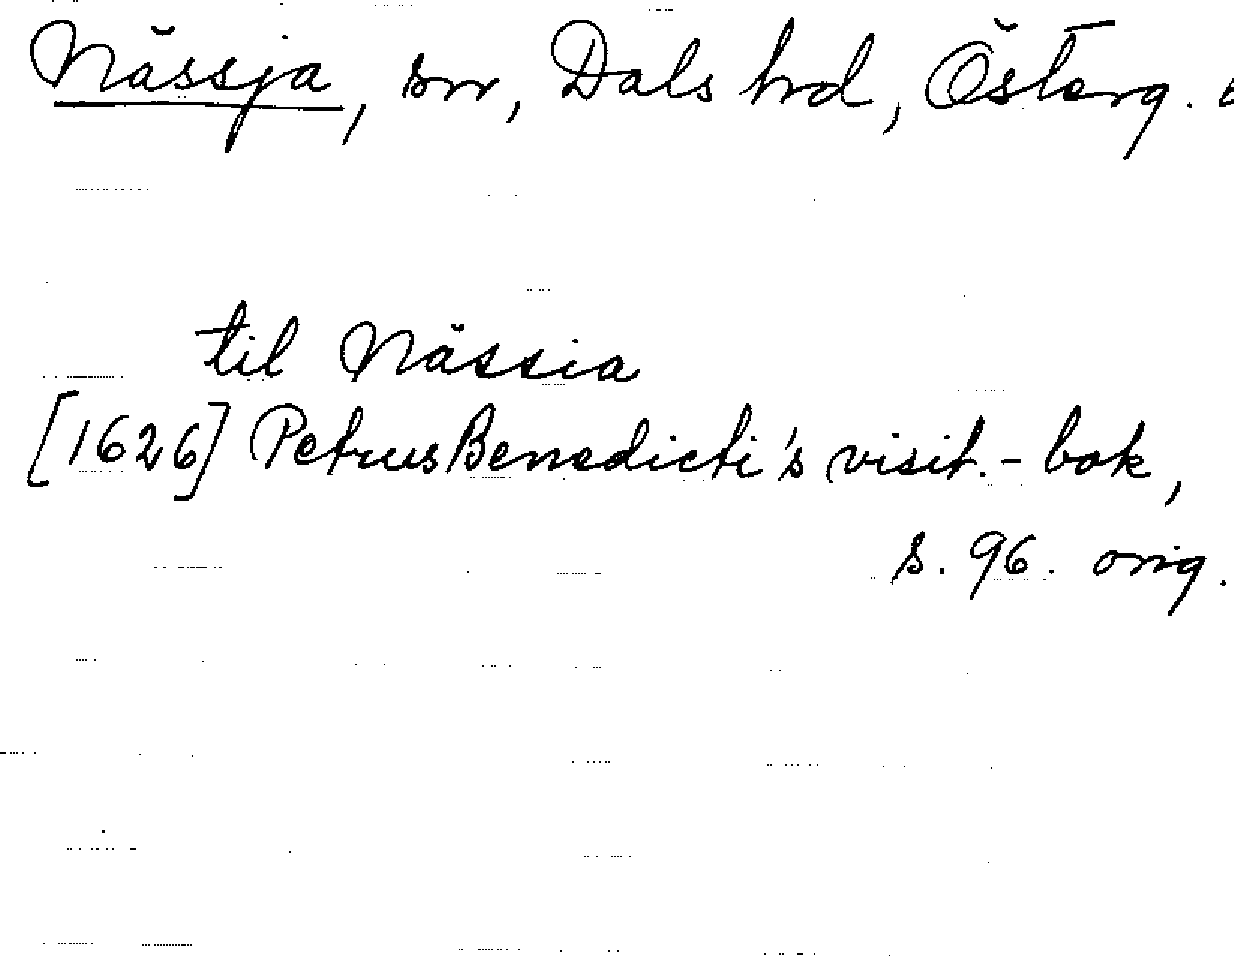 Nässja, sn, Dals hrd, Österg.
til Nässia
[1626] Petrus Benedicti's visit.-bok,
s. 96. orig.